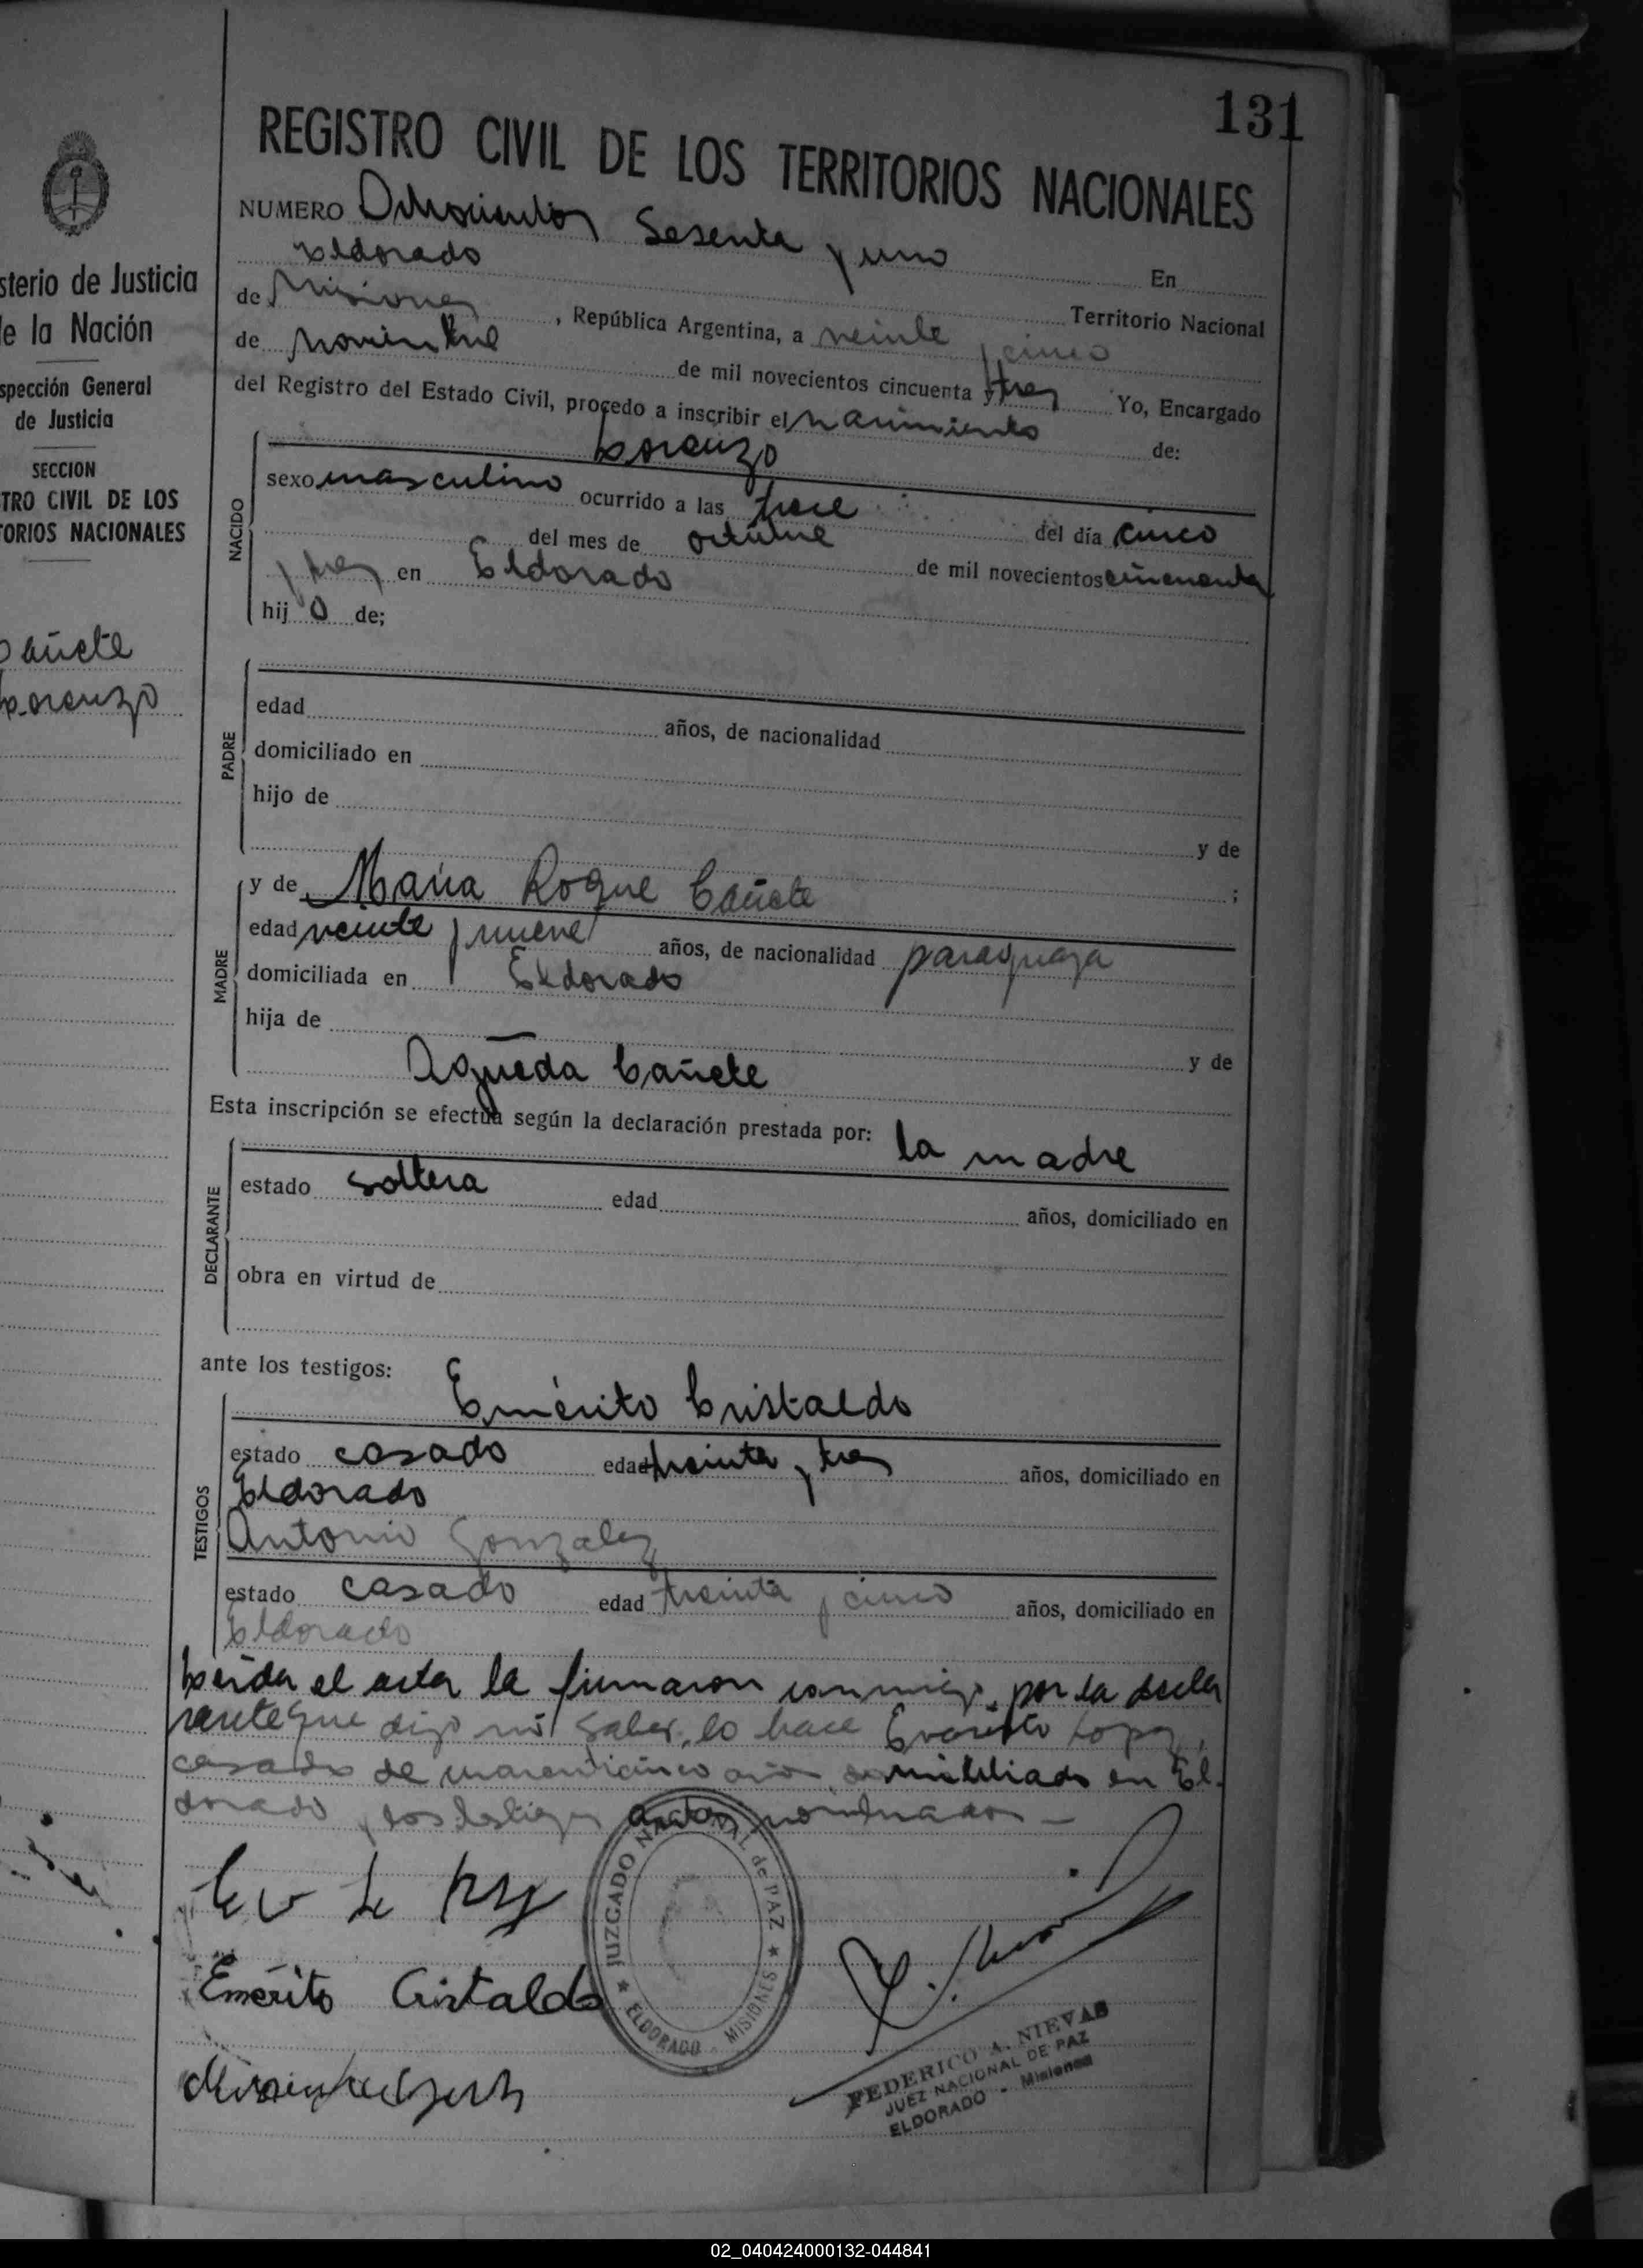 131
REGISTRO CIVIL DE LOS TERRITORIOS NACIONALES
NUMERO Ochocientos Sesenta y uno
En
Eldorado
Territorio Nacional
de Misiones, República Argentina, a veinte y cinco
de noviembre de mil novecientos cincuenta y tres Yo, Encargado
del Registro del Estado Civil, procedo a inscribir el nacimiento de:
Lorenzo
NACIDO
sexo masculino ocurrido a las trece del día cinco
del mes de octubre de mil novecientos cincuenta
y tres en Eldorado
hij o de;
PADRE
edad años, de nacionalidad
domiciliado en
hijo de
y de
;
MADRE
y de Maria Roque Cañete
edad veinte y nueve años, de nacionalidad paraguaya
domiciliada en Eldorado
hija de
y de
Agueda Cañete
Esta inscripción se efectúa según la declaración prestada por: la madre
DECLARANTE
estado soltera edad años, domiciliado en
obra en virtud de
ante los testigos:
Emérito Cristaldo
TESTIGOS
estado casado edad treinta y tres años, domiciliado en
Eldorado
Antonio Gonzalez
estado casado edad treinta y cinco años, domiciliado en
Eldorado
Leida el acta la firmaron conmigo, por la decla
rante que dijo no saber, lo hace Evaristo Lopez,
casado de cuarenticinco años domiciliado en El-
dorado y los testigos nombrados —
Emérito Cristaldo
JUZGADO NACIONAL de PAZ
ELDORADO MISIONES
FEDERICO A. NIEVAS
JUEZ NACIONAL DE PAZ
ELDORADO - Misiones
sterio de Justicia
e la Nación
spección General
de Justicia
SECCION
TRO CIVIL DE LOS
TORIOS NACIONALES
Cañete
Lorenzo
02_040424000132-044841